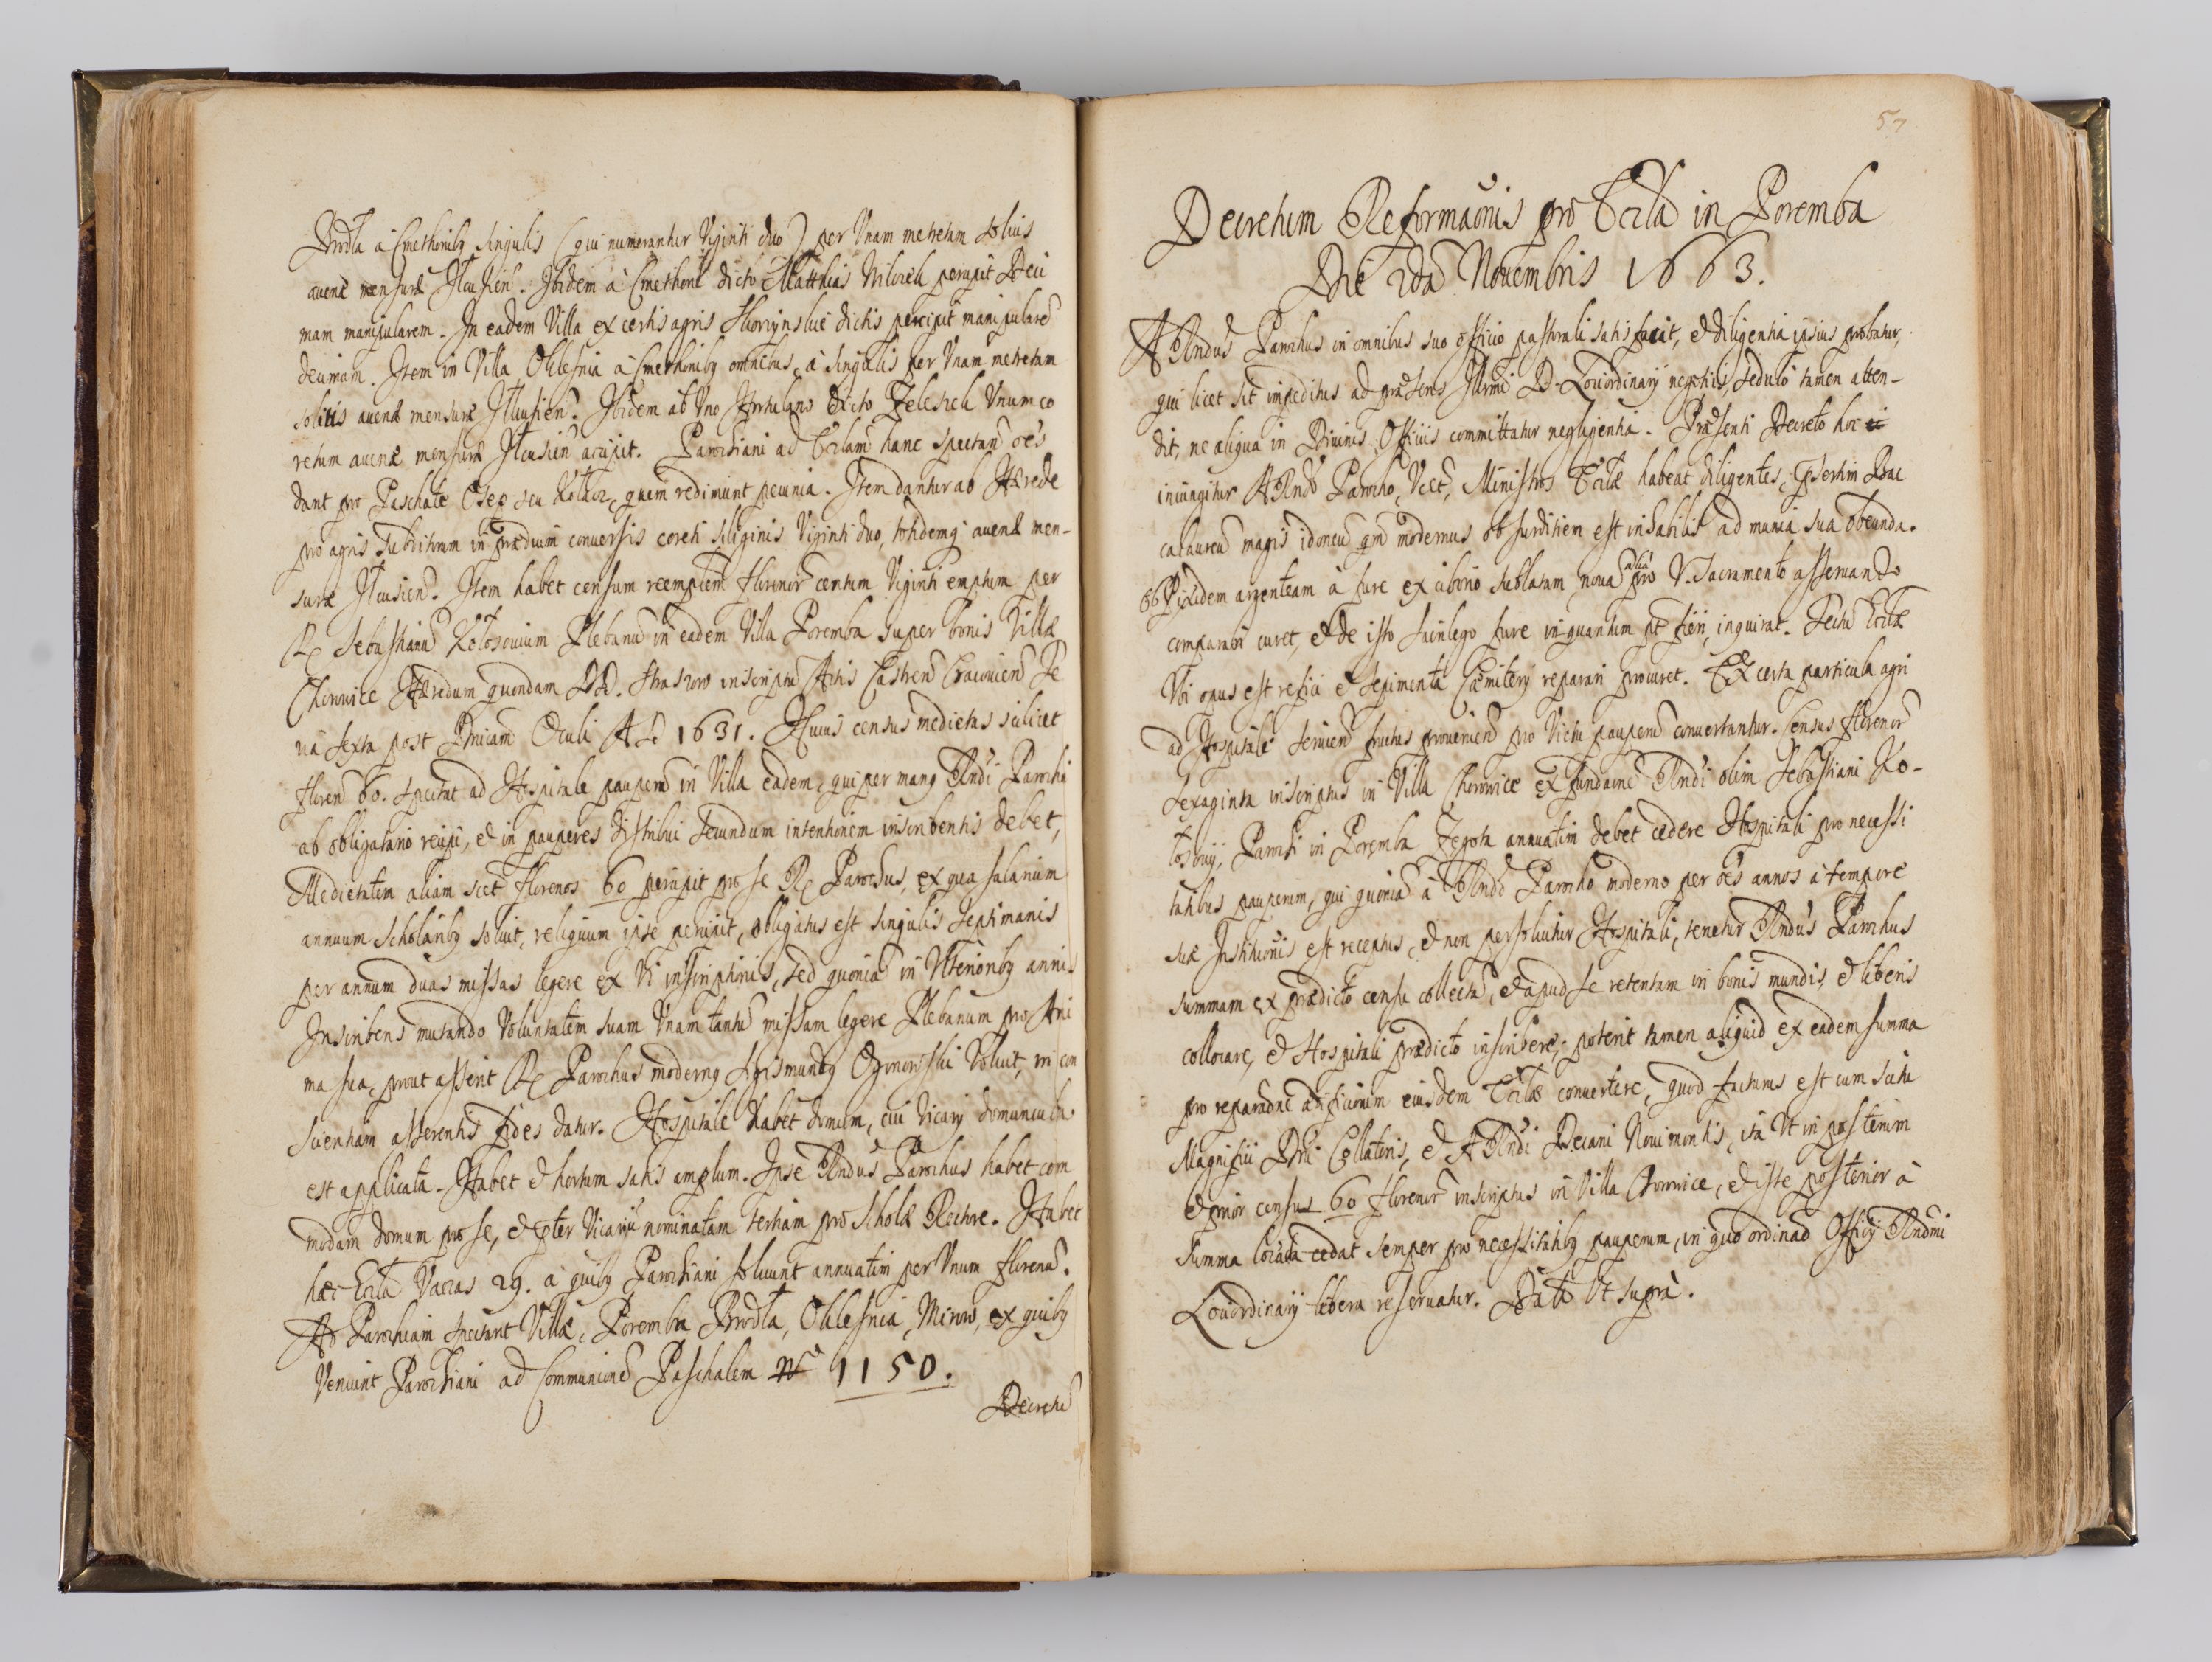 Brodła à Cmethonibꝫ singulis (qui numerantur Viginti duo) per Vnam metretam solius
auenæ mensuræ Ilcusien̄. Ibidem à Cmethone dicto Matthias percipit Deci
mam manipularem. In eadem Villa ex certis agris dictis percipit manipularē
decimam. Item in Villa Oklesnia à Cmethonibꝫ omnibus, à singulis per Vnam metretam
solitis auenæ mensuræ Ilkusien̄. Ibidem ab Vno Hortulano dicto Zelesnik Vnum co
retum auenæ mensuræ Ilcusien̄ accipit. Parochiani ad Ecclām hanc spectan̄ oēs
dant pro Paschate Osep seu Kołacz, quem redimunt pecunia. Item dantur ab Hærede
pro agris Subditorum in prædium conuersis coreti siliginis Viginti duo, totidemq̃ auenæ men-
suræ Ilcusien̄. Item habet censum reemptem florenor̄ centum Viginti emptum per
R. Sebastianū Kołosouium Plebanū in eadem Villa Poremba super bonis Villæ
Chorowice Hæredum quondam DD. Straszow inscriptū Actis Castren̄ Cracouien̄ Fe
ria sexta post Dnicam Oculi A D 1631. Huius census medietas scilicet
floren̄ 60. spectat ad Hospitale pauperū in Villa eadem, qui per manꝫ Rndi Parochi
ab obligatario recipi, et in pauperes distribui secundum intentionem inscribentis debet,
Medietatem aliam scet florenos 60 percipit pro se R. Parochus, ex qua salarium
annuum Scholaribꝫ soluit, reliquum ipse percipit, obligatus est singulis septimanis
per annum duas missas legere ex Vi inscriptionis, sed quoniā in Vlterioribꝫ annis
Inscribens mutando Voluntatem suam Vnam tantū missam legere Plebanum pro Ani
ma sua, prout asserit R. Parochus modernꝫ Sigismundꝫ Ozorowski Voluit, cui con
scientiam asserentis fides datur. Hospitale habet domum, cui Vicarij domuncula
est applicata. Habet et hortum satis amplum. Ipse Rndus Parochus habet com
modam domum pro se, et pter Vicariū nominatam tertiam pro Scholæ Rectore. Habet
hæc Eccla Vaccas 29. à quibꝫ Parochiani soluunt annuatim per Vnum florenū.
Ad Parochiam spectant Villæ, Poremba Brodła, Oklesnia, Mirow, ex quibꝫ
Veniunt Parochiani ad Communionē Paschalem N° 1150.
Decretū
57
Decretum Reformaōnis pro Eccla in Poremba
Die 2da Nouembris 1663.
A Rndus Parochus in omnibus suo officio pastorali satis facit, et diligentia ipsius probatur,
qui licet sit impeditus ad præsens Illrmi D. Loci ordinarij negotijs, sedulò tamen atten-
dit, ne aliqua in Diuinis Officijs committatur negligentia. Præsenti Decreto hoc ei
iniungitur A Rndo Parocho, Vt, Ministros Ecclæ habeat diligentes, psertim Bac
calaureū magis idoneū qm̄ modernus ob surditiem est inhabilis ad munia sua obeunda.
Ob Pixidem argenteam à fure ex ciborio sublatam, noua alia pro V. Sacramento asseruando
comparari curet, et de isto sacrilego fure in quantum pt fieri, inquirat. Tectū Ecclæ
Vbi opus est refici et sepimenta Cæmiterij reparari procuret. Ex certa particula agri
ad Hospitale seruien̄ fructus prouenien̄ pro Victu pauperū conuertantur. Census florenor̄
sexaginta inscriptus in Villa Chorowice ex fundaōne Rndi olim Sebastiani Ko-
łosouij, Parochi in Poremba Zegota annuatim debet cedere Hospitali pro necessi
tatibus pauperum, qui quoniā à Rndo Parocho moderno per oēs annos à tempore
suæ Institutionis est receptus, et non persoluitur Hospitali, tenetur Rndus Parochus
summam ex prædicto censu collectā, et apud se retentam in bonis mundis, et liberis
collocare, et Hospitali prædicto inscribere, poterit tamen aliquid ex eadem summa
pro reparaōne ædificiorum eiusdem Ecclæ conuertere, quod facturus est cum scitu
Magnifici Dni Collatoris, et A Rndi Decani Nouimontis, ità Vt in posterum
et prior census 60 florenor̄ inscriptus in Villa Chorowice, et iste posterior à
summa locata cedat semper pro necessitatibꝫ pauperum, in quo ordinaō Officij Rndmi
Loci ordinarij libera reseruatur. Datū Vt suprà.